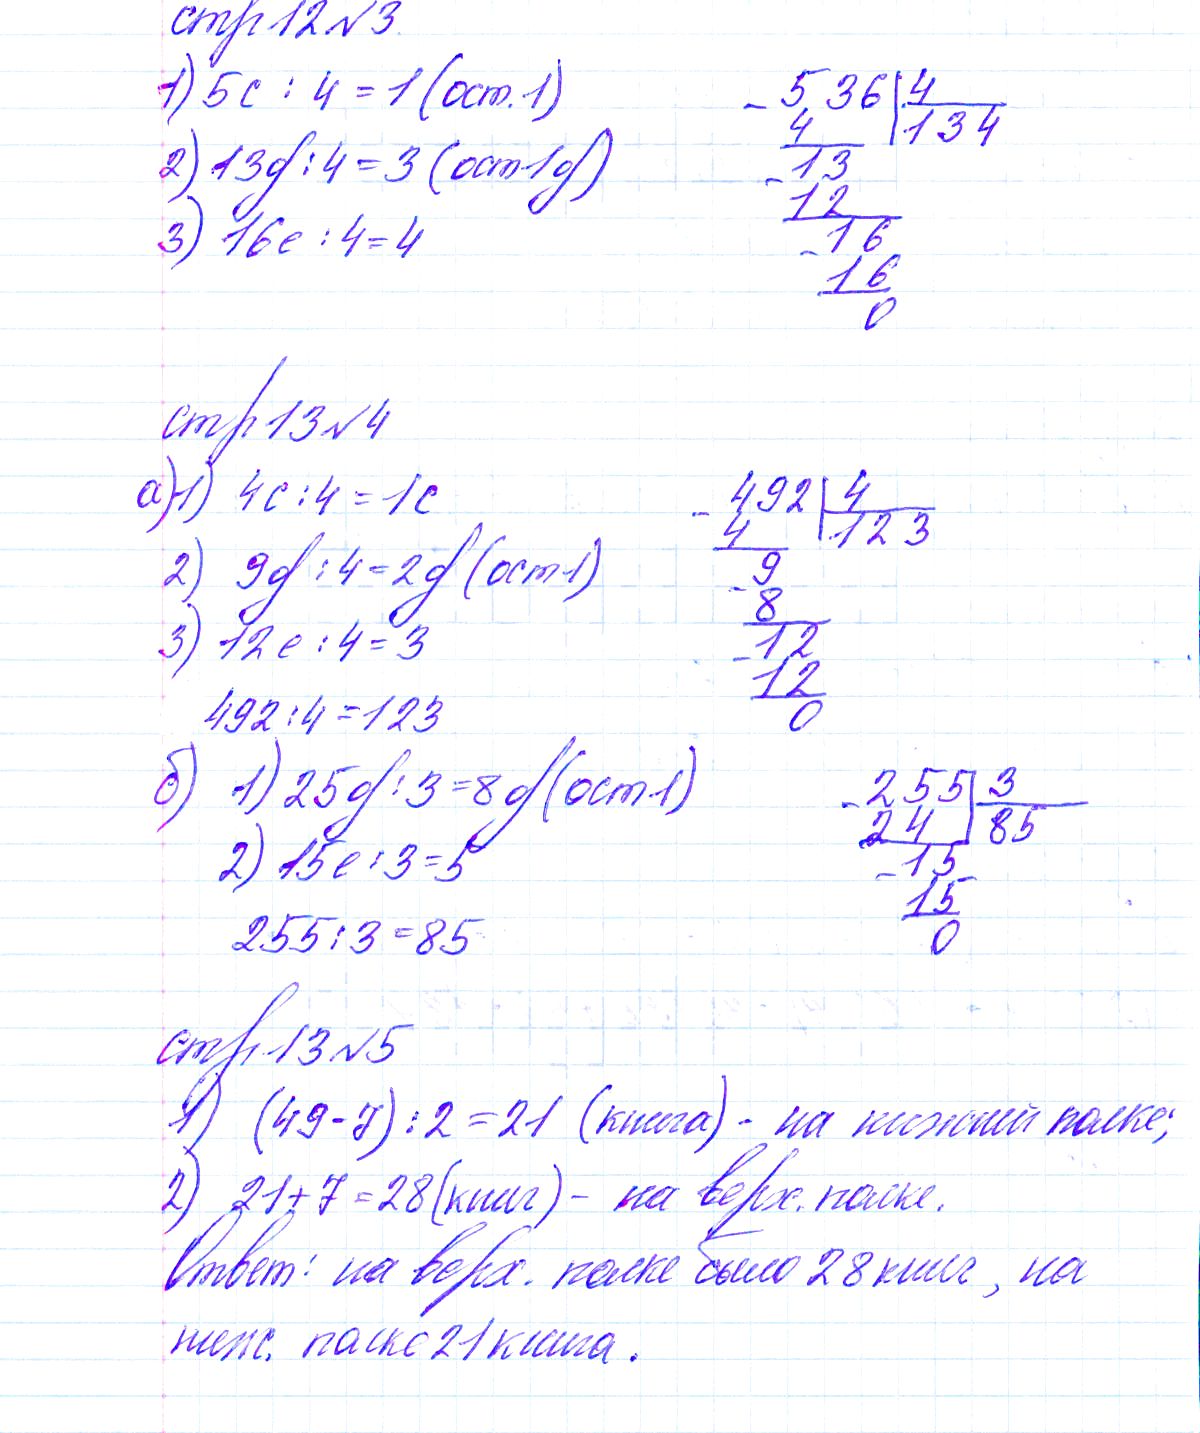 стр 12 №3
1) 5с : 4 = 1 (ост. 1)
2) 13д : 4 = 3 (ост 1д)
3) 16е : 4 = 4
- 536 | 4
4 134
- 13
12
- 16
16
0
стр 13 №4
а) 1) 4с : 4 = 1с
2) 9д : 4 = 2д (ост 1)
3) 12е : 4 = 3
492 : 4 = 123
- 492 | 4
4 123
- 9
8
- 12
12
0
б) 1) 25д : 3 = 8д (ост 1)
2) 15е : 3 = 5
255 : 3 = 85
- 255 | 3
24 85
- 15
15
0
стр 13 №5
1) (49 - 7) : 2 = 21 (книга) - на нижний полке;
2) 21 + 7 = 28 (книг) - на верх. полке.
Ответ: на верх. полке было 28 книг, на
ниж. полке 21 книга.